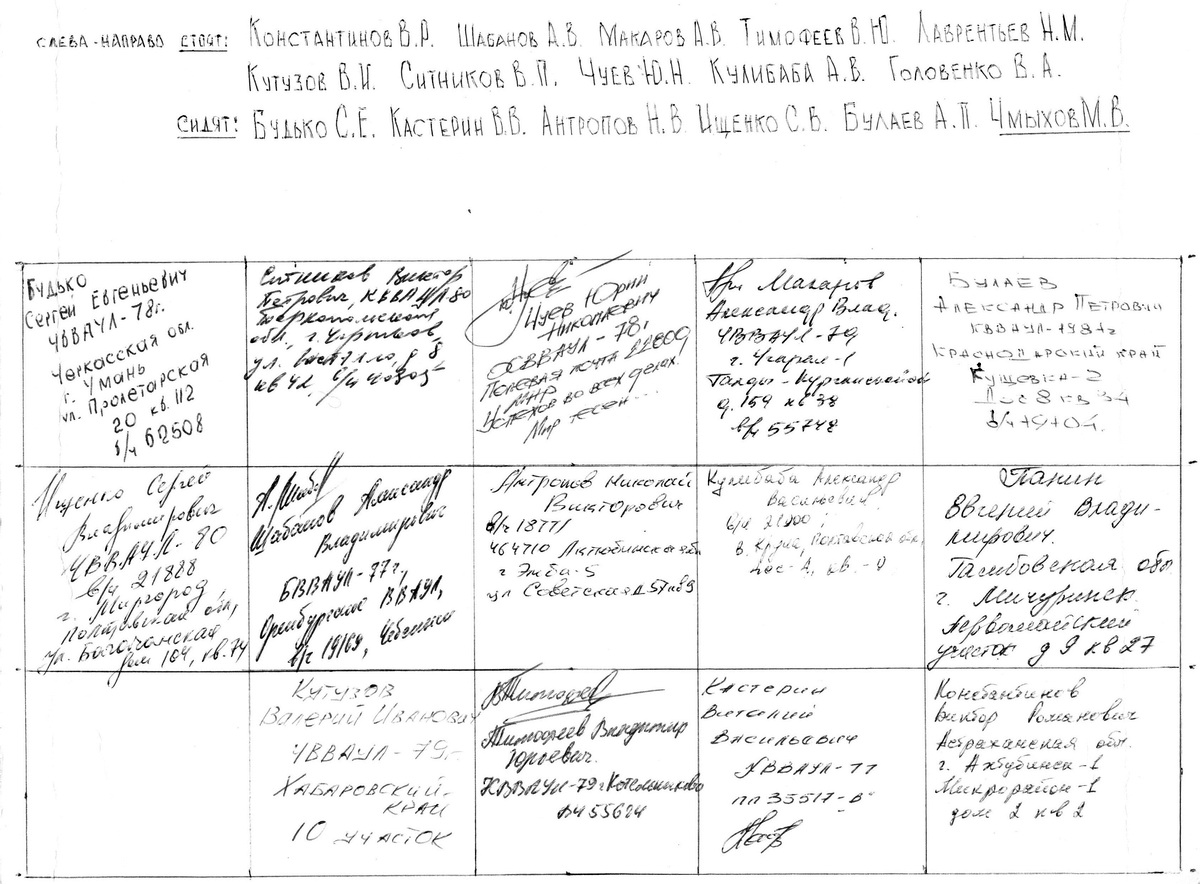 СЛЕВА-НАПРАВО СТОЯТ: КОНСТАНТИНОВ В.Р. ШАБАНОВ А.В. МАКАРОВ А.В. ТИМОФЕЕВ В.Ю. ЛАВРЕНТЬЕВ Н.М.
КУТУЗОВ В.И. СИТНИКОВ В.П. ЧУЕВ Ю.Н. КУЛИБАБА А.В. ГОЛОВЕНКО В.А.
СИДЯТ: БУДЬКО С.Е. КАСТЕРИН В.В. АНТРОПОВ Н.В. ИЩЕНКО С.В. БУЛАЕВ А.П. ЧМЫХОВ М.В.
БУДЬКО
СЕРГЕЙ ЕВГЕНЬЕВИЧ
ЧВВАУЛ-78г.
Черкасская обл.
г. Умань
ул. Пролетарская
20 кв. 112
в/ч 62508
Ситников Виктор
Петрович, КВВАУЛ 80
обл., г. Чортков,
ул. д 8
кв 42,
Чуев Юрий
Николаевич
ОСВВАУЛ-78г
Полевая почта 22800
МНР
Успехов во всех делах.
Мир тесен...
Макаров
Александр Влад.
ЧВВАУЛ-79
г. Учарал-1
Талды-Курганской
д. 159 кв 38
в/ч 55748
БУЛАЕВ
АЛЕКСАНДР ПЕТРОВИЧ
КВВАУЛ-1981г
КРАСНОДАРСКИЙ КРАЙ
КУЩЕВКА-2
Дос 8 кв 34
в/ч
Ищенко Сергей
Владимирович
ЧВВАУЛ-80
в/ч 21888
г. Миргород
Полтавская обл,
ул.
дом 104, кв. 74
Шабанов Александр
Владимирович
БВВАУЛ-77г,
Оренбургское ВВАУЛ,
в/ч 19169,
Антропов Николай
Викторович
в/ч 18771
464710 Актюбинская обл
г Эмба-5
ул Советская д 57 кв 9
Кулибаба Александр
Васильевич
в/ч
Полтавской обл,
Дос-
Панин
Евгений Влади-
мирович.
Тамбовская обл
г. Мичуринск
Первомайский
участок д 9 кв 27
КУТУЗОВ
ВАЛЕРИЙ ИВАНОВИЧ
ЧВВАУЛ-79г.
ХАБАРОВСКИЙ-
КРАЙ
10 УЧАСТОК
Тимофеев
Тимофеев Владимир
Юрьевич.
КВВАУЛ-79 г Котельниково
ВЧ 55624
Кастерин
Виталий
Васильевич
ХВВАУЛ-77
пп 35517-В
Константинов
Виктор Романович
Астраханская обл.
г. Ахтубинск-1
Микрорайон-1
дом 2 кв 2